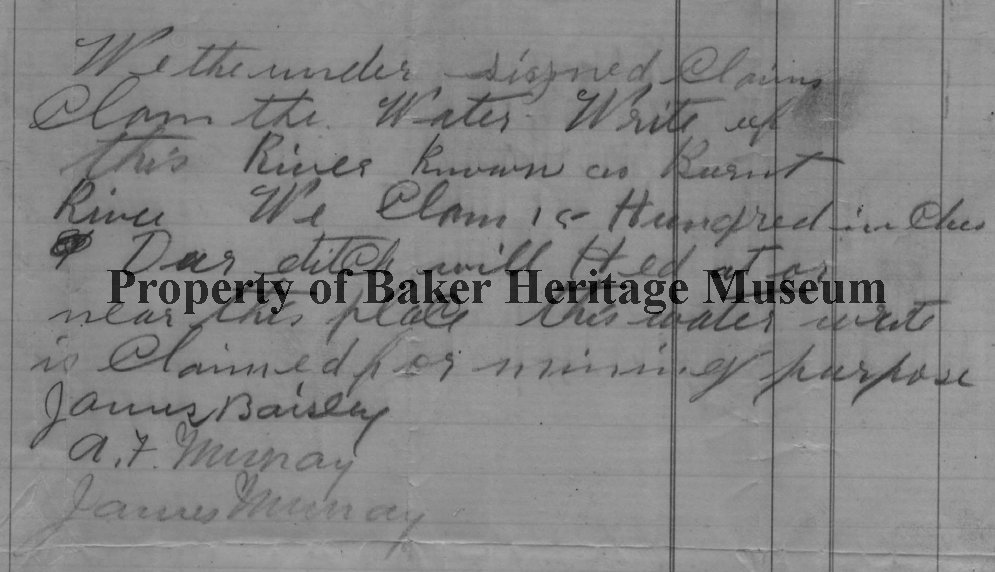 We the under signed Claims
Clam the Water Write of
this River known as Burnt
River We Clam 15 Hundred inches
Our ditch will Hed at or
Property of Baker Heritage Museum
near this place this water write
is Claimed for mining purpose
James Baisley
A.F. Murray
James Murray